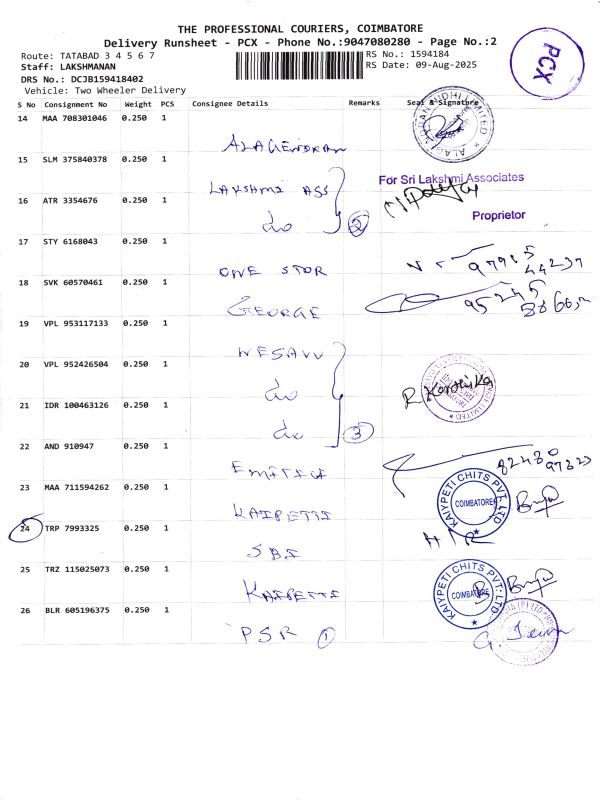 THE PROFESSIONAL COURIERS, COIMBATORE
Delivery Runsheet - PCX - Phone No.:9047080280 - Page No.:2
Route: TATABAD 3 4 5 6 7
RS No.: 1594184
Staff: LAKSHMANAN
RS Date: 09-Aug-2025
DRS No.: DCJB159418402
Vehicle: Two Wheeler Delivery
PCX
S No Consignment No Weight PCS Consignee Details Remarks Seal & Signature
14 MAA 708301046 0.250 1
ALAGENDRAN
15 SLM 375840378 0.250 1
LAKSHMI ASS
For Sri Lakshmi Associates
16 ATR 3354676 0.250 1
do 2
Proprietor
17 STY 6168043 0.250 1
ONE STOR
44237
18 SVK 60570461 0.250 1
GEORGE
95245
19 VPL 953117133 0.250 1
NESAVU
20 VPL 952426504 0.250 1
do
R Karthika
21 IDR 100463126 0.250 1
do 3
22 AND 910947 0.250 1
82480
97823
23 MAA 711594262 1 0.250
KAIPETTI
KAIYPETI CHITS PVT. LTD
COIMBATORE
24 TRP 7993325 0.250 1
SBI
25 TRZ 115025073 0.250 1
KAIPETTI
KAIYPETI CHITS PVT. LTD
COIMBATORE
26 BLR 605196375 0.250 1
PSR 1